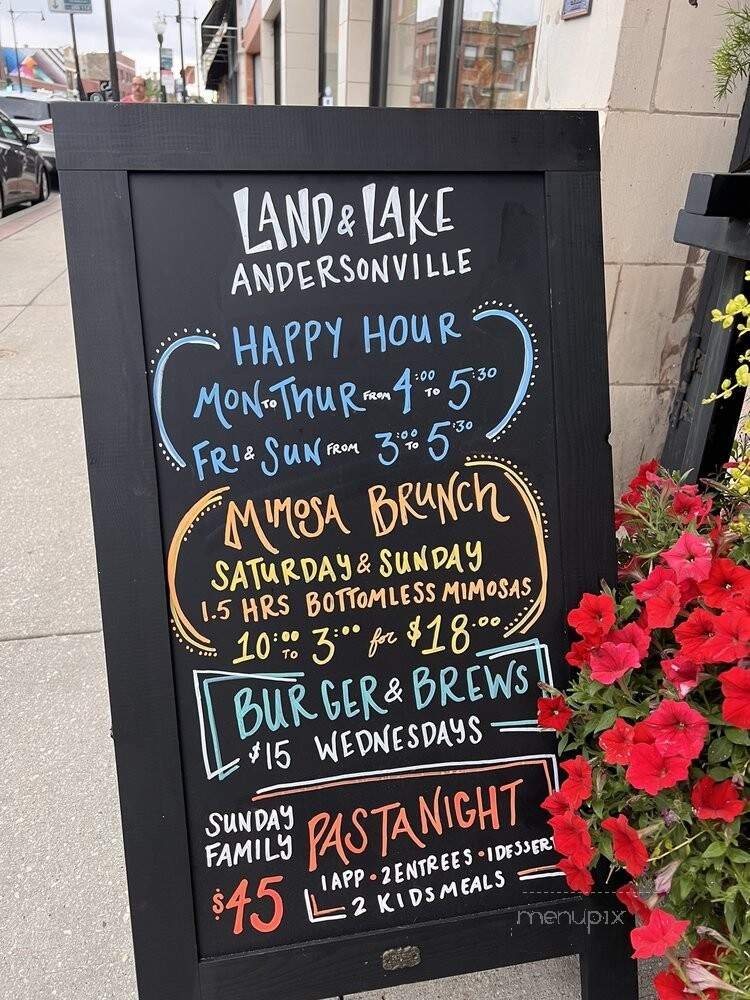 LAND & LAKE
ANDERSONVILLE
HAPPY HOUR
MON TO THUR FROM 4:00 TO 5:30
FRI & SUN FROM 3:00 TO 5:30
MIMOSA BRUNCH
SATURDAY & SUNDAY
1.5 HRS BOTTOMLESS MIMOSAS
10:00 TO 3:00 for $18.00
BURGER & BREWS
$15 WEDNESDAYS
SUNDAY
FAMILY
PASTA NIGHT
$45
1 APP • 2 ENTREES • 1 DESSERT
2 KIDS MEALS
menupix